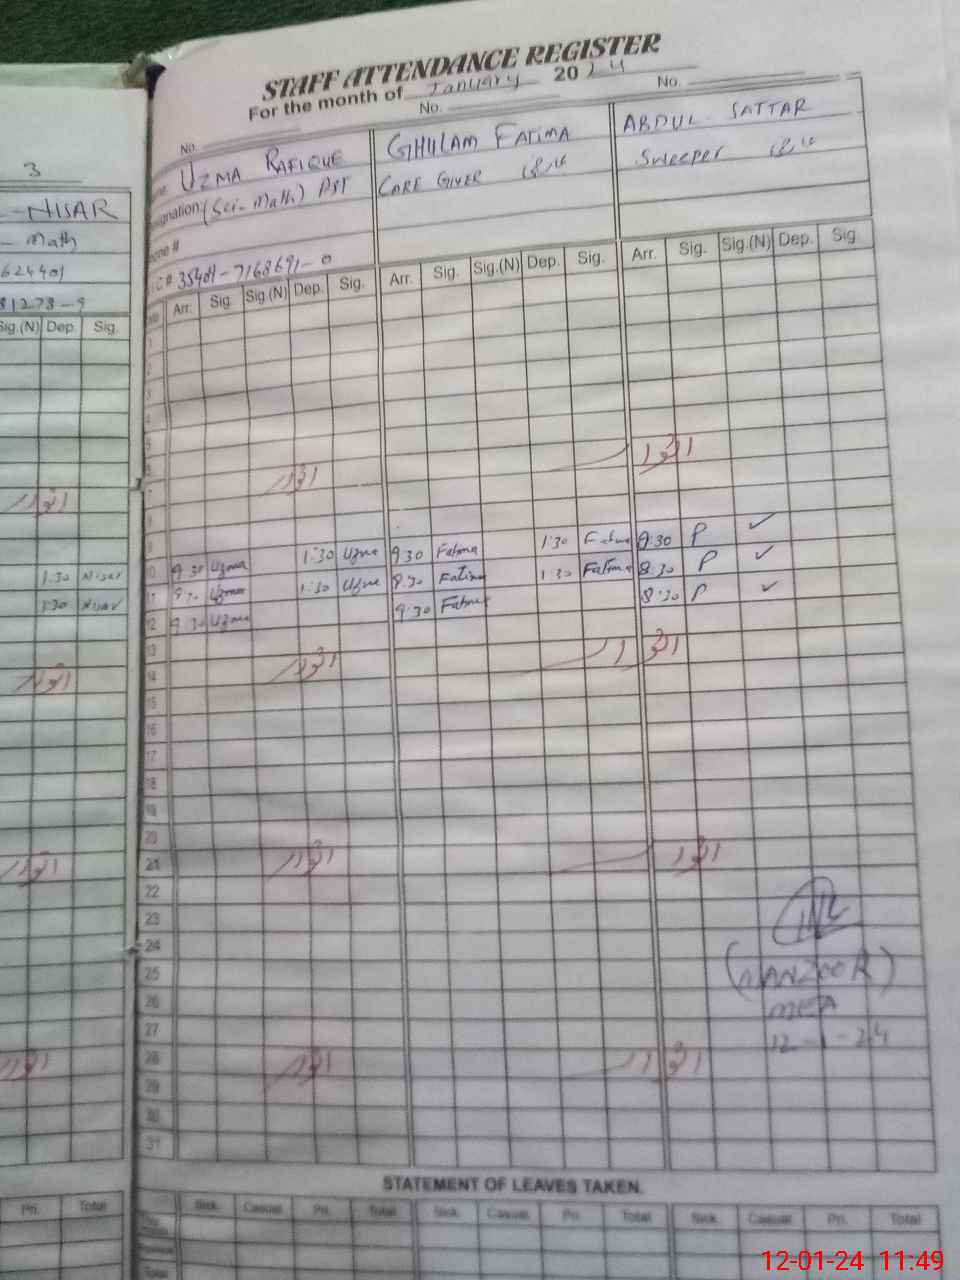 STAFF ATTENDANCE REGISTER
For the month of January 2024
No. No. No.
UZMA RAFIQUE GHULAM FATIMA ABDUL SATTAR
(Sci-Math) PST CARE GIVER Sweeper
35401-7168691-0
Arr. Sig. Sig.(N) Dep. Sig. Arr. Sig. Sig.(N) Dep. Sig. Arr. Sig. Sig.(N) Dep. Sig.
3
-NISAR
- Math
624401
81278-9
Sig.(N) Dep. Sig.
1
2
3
4
5
6
7
8
9
10 9:30 Uzma 1:30 Uzma 9:30 Fatima 1:30 Fatima 8:30 P ✓
11 9:30 Uzma 1:30 Uzma 8:30 Fatima 1:30 Fatima 8:30 P ✓
12 9:30 Uzma 9:30 Fatima 8:30 P ✓
1:30 Nisar
1:30 Nisar
13
14
15
16
17
18
19
20
21
22
23
24
25
26
27
28
29
30
31
(MANZOOR)
MEA
12-1-24
STATEMENT OF LEAVES TAKEN.
Pri. Total Sick. Casual. Pri. Total Sick. Casual. Pri. Total Sick. Casual. Pri. Total
12-01-24 11:49